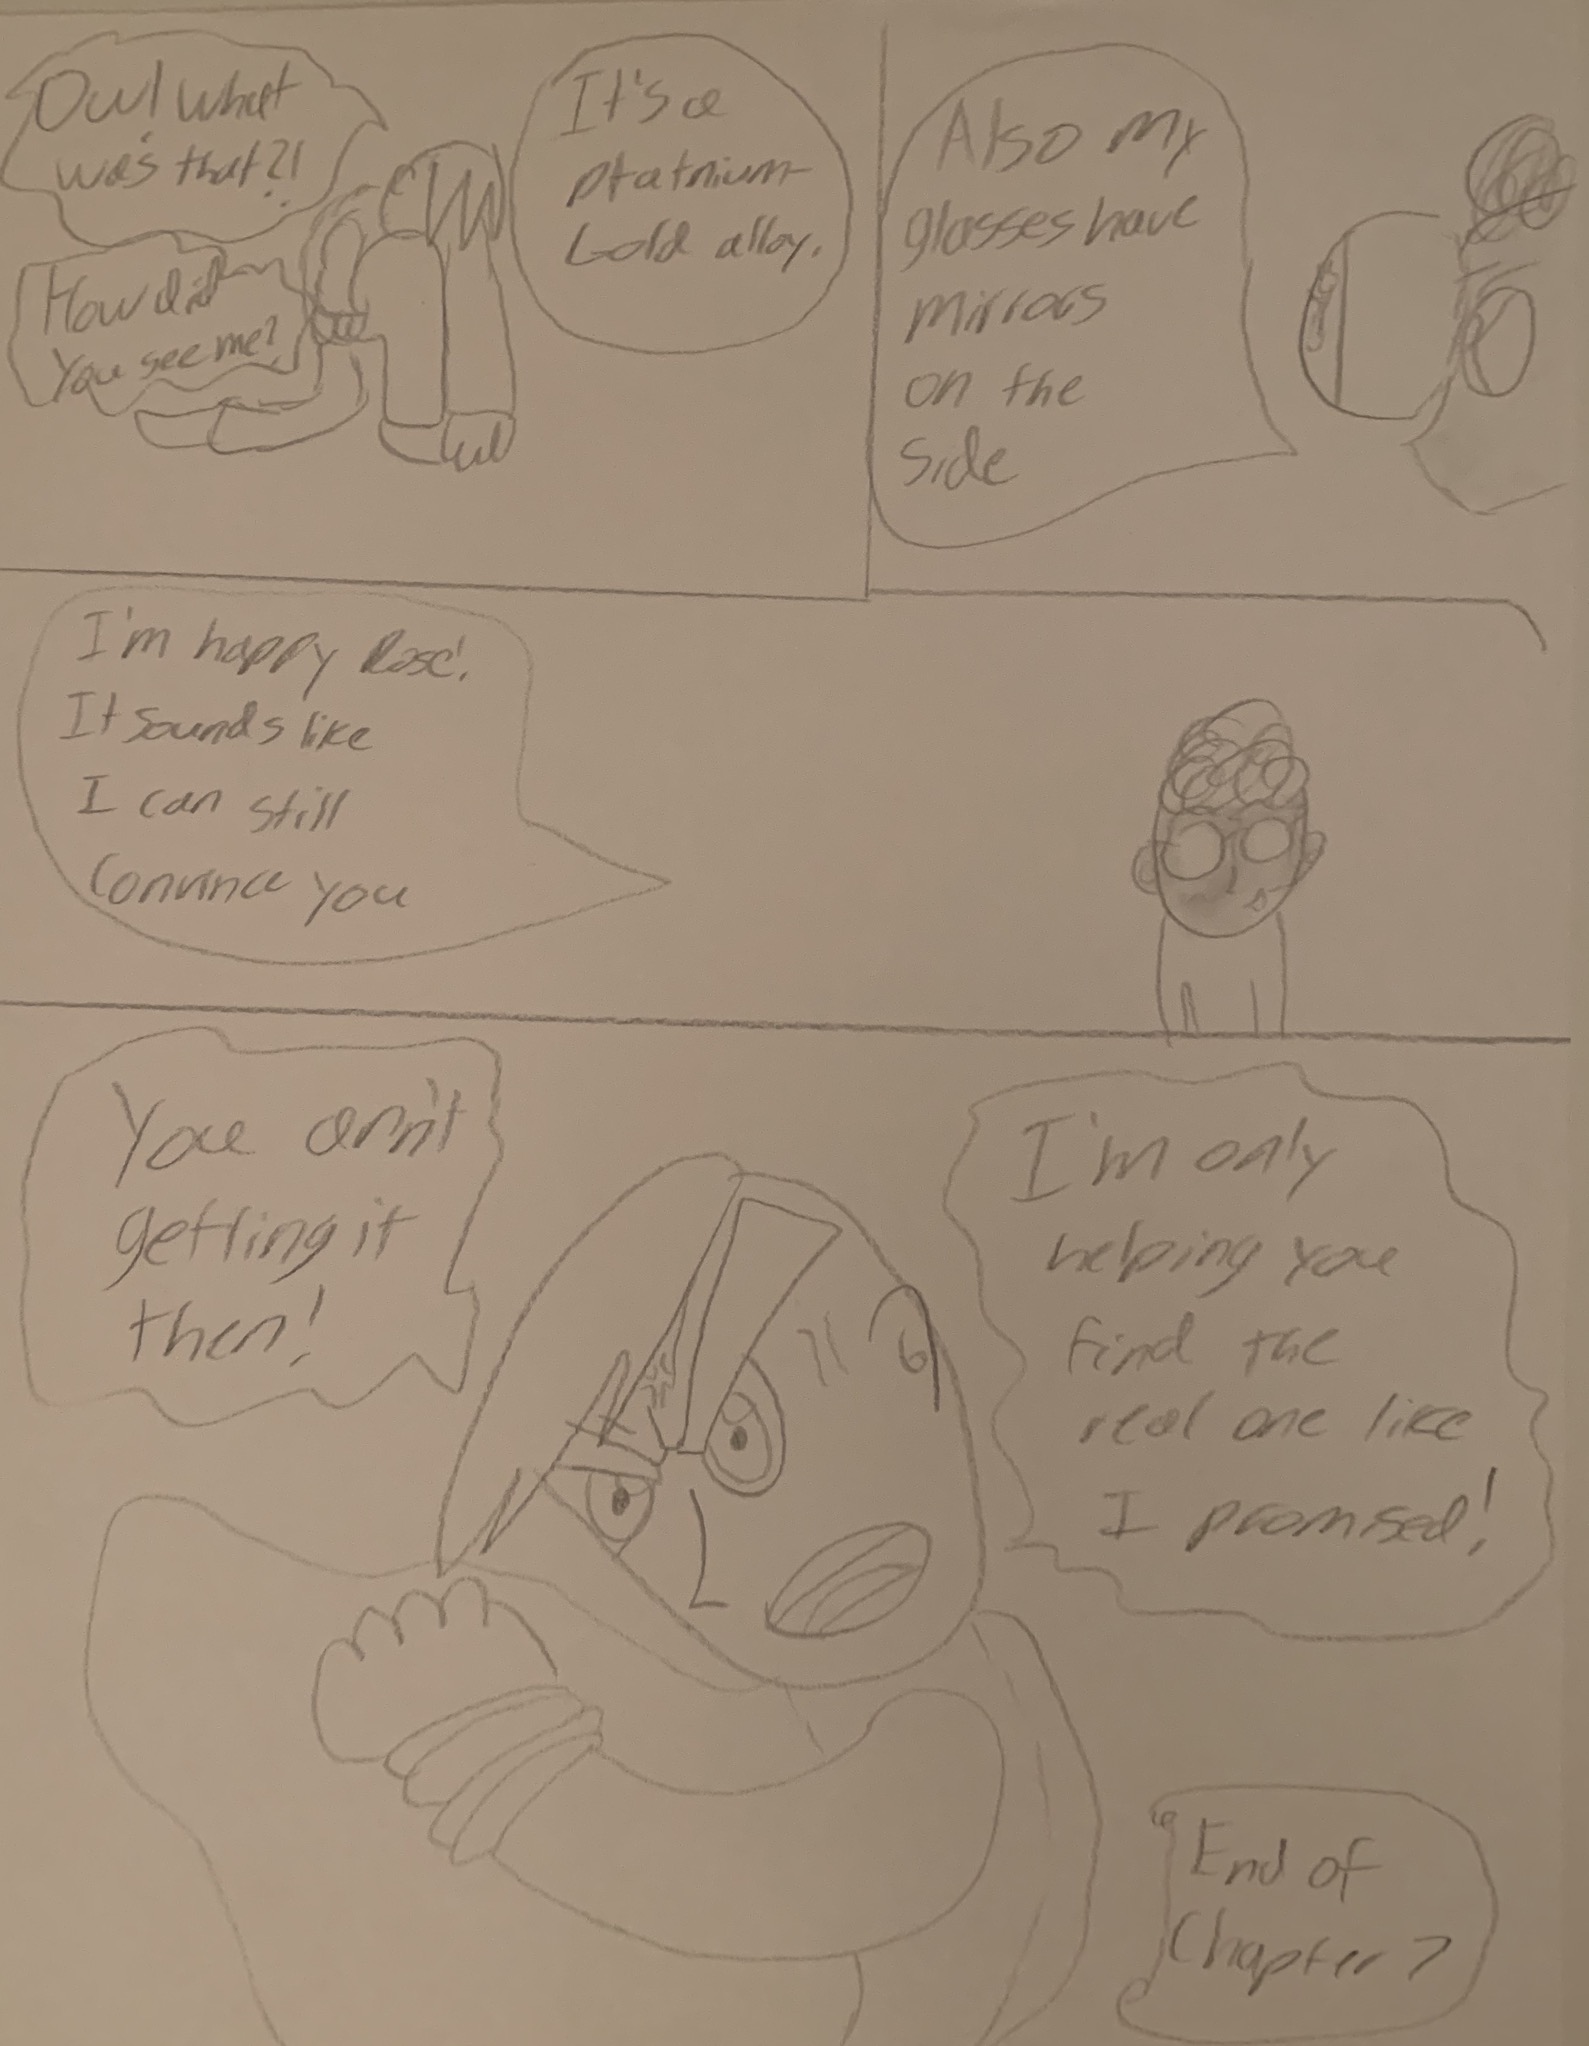 Ow! What
was that?!
How did
you see me?
It's a
platnium
Gold alloy.
Also my
glasses have
mirrors
on the
side
I'm happy Rose!
It sounds like
I can still
convince you
You ain't
getting it
then!
I'm only
helping you
find the
real one like
I promised!
End of
Chapter 7